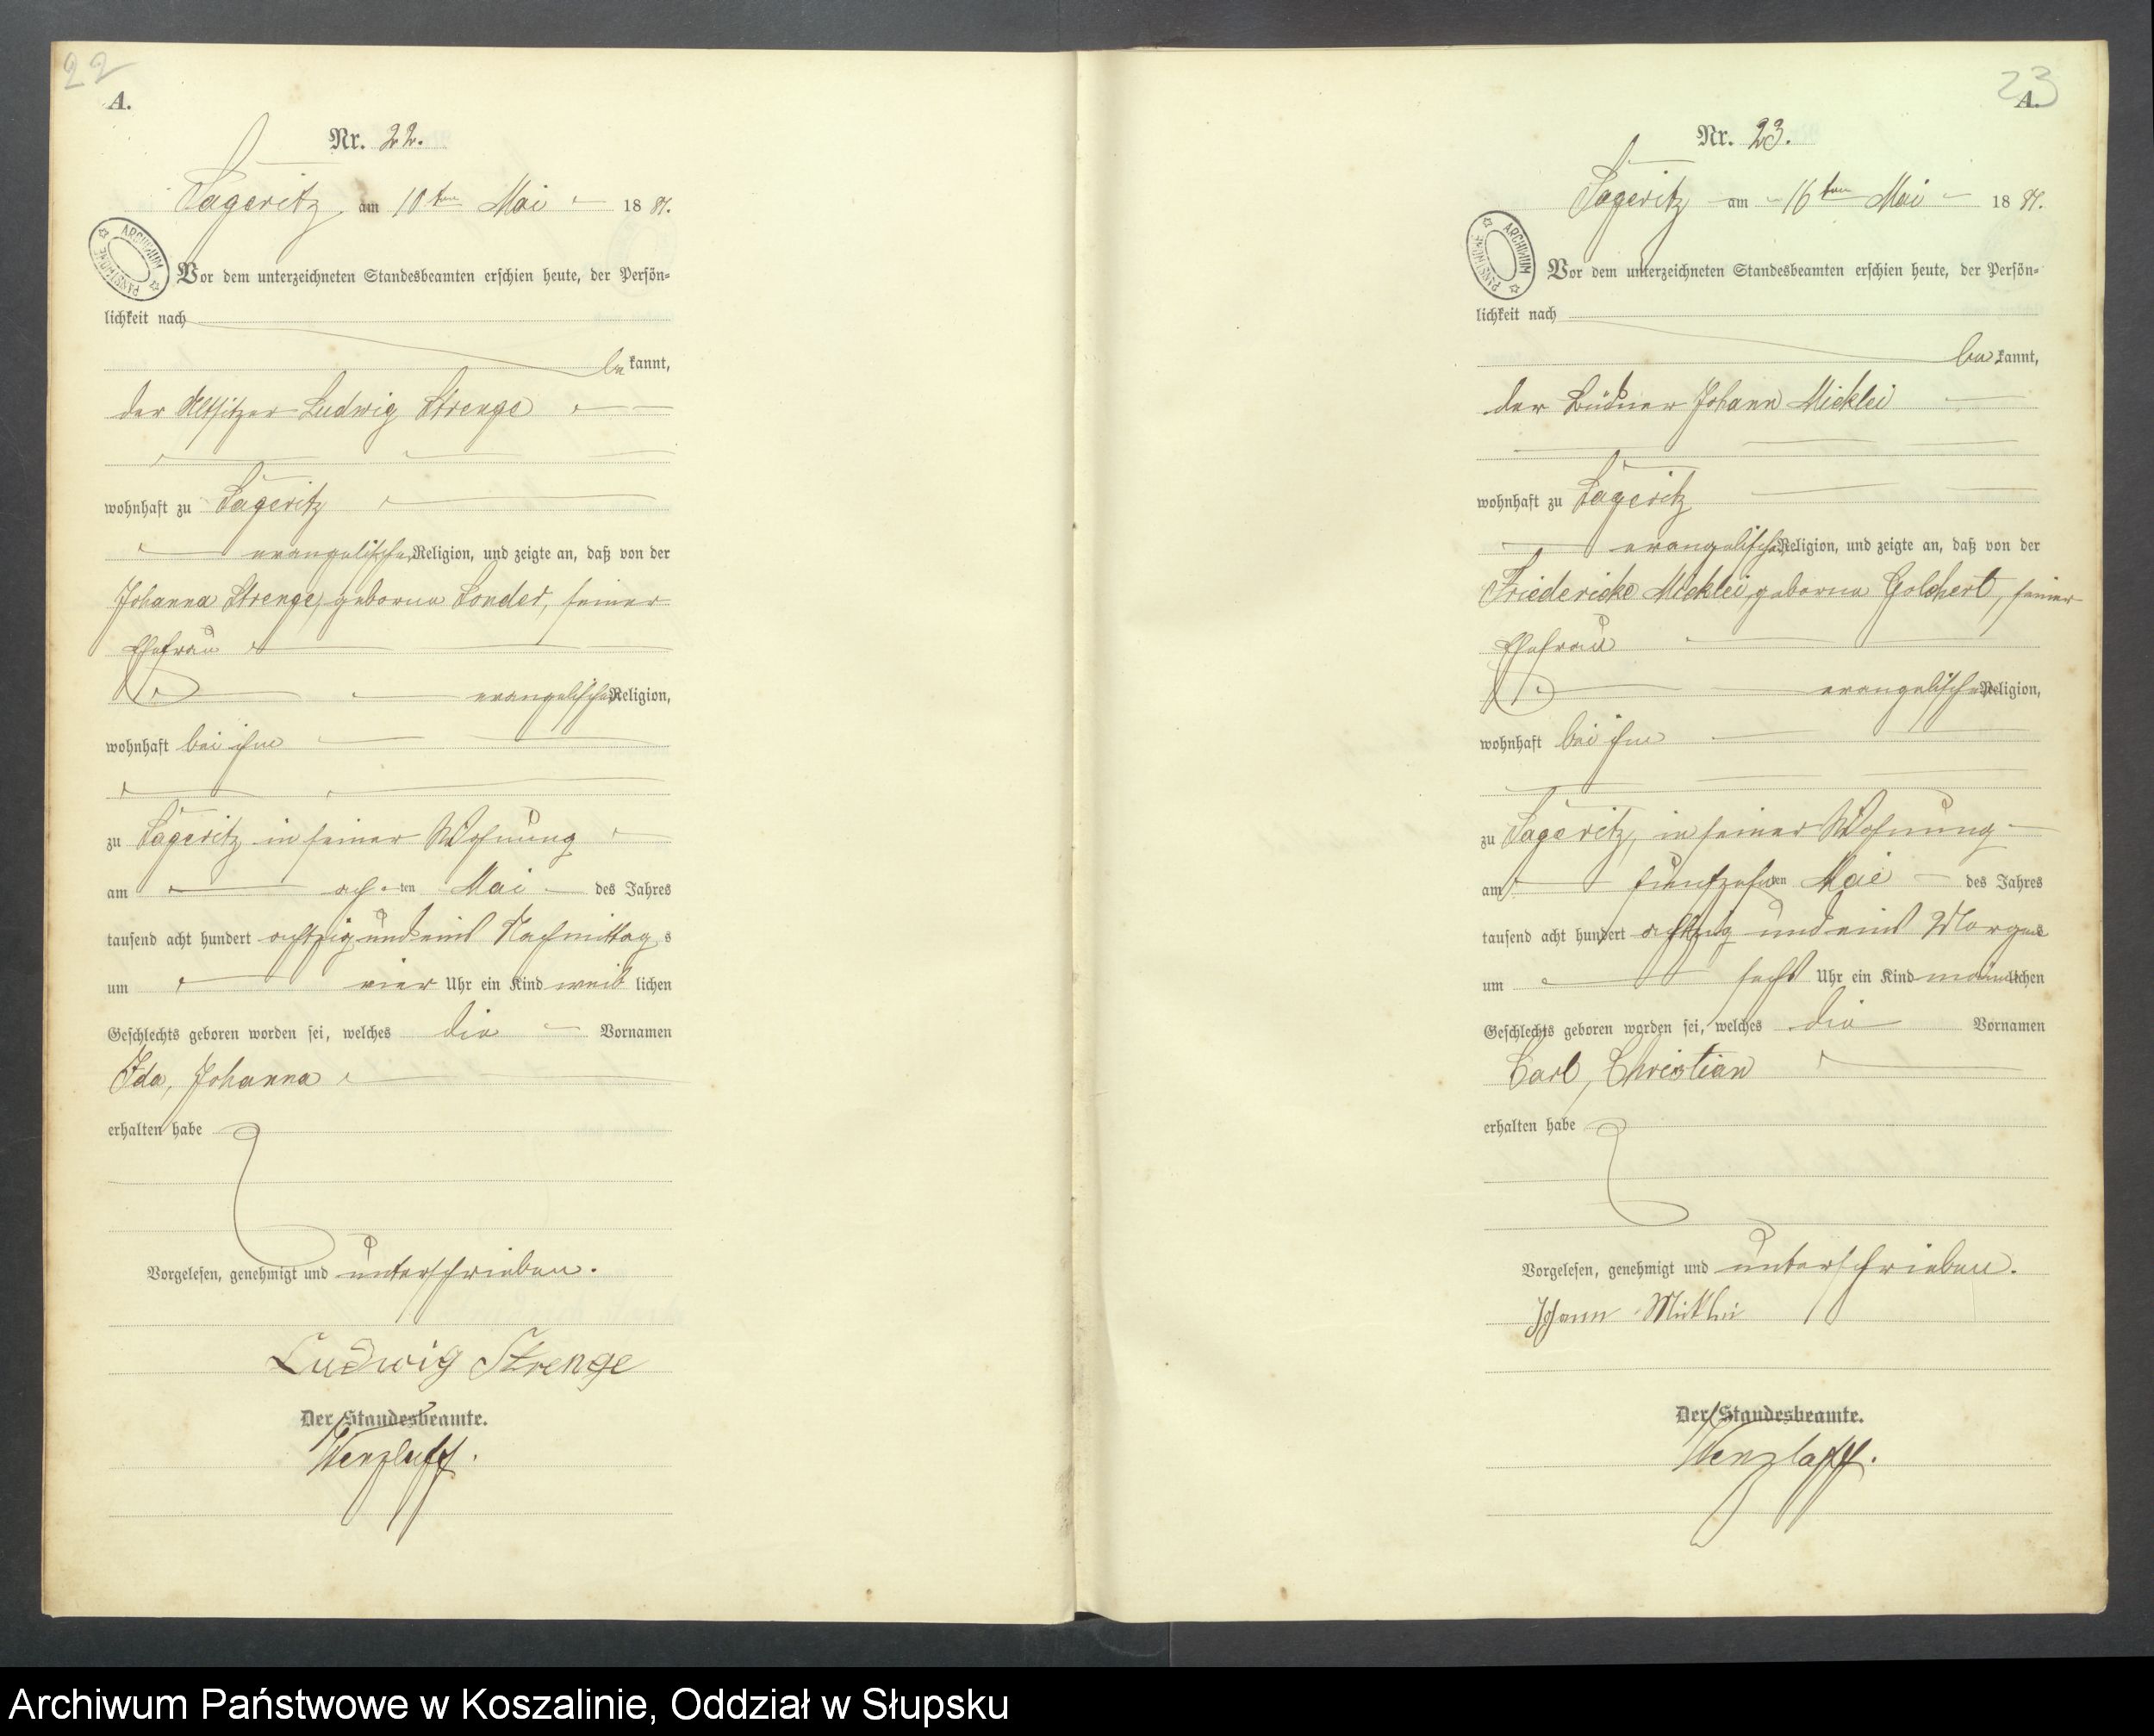 22
A.
Nr. 22.
Sageritz am 10ten Mai 1881.
ARCHIWUM PAŃSTWOWE
Vor dem unterzeichneten Standesbeamten erschien heute, der Persön-
lichkeit nach
be kannt,
der Altsitzer Ludwig Strenge
wohnhaft zu Sageritz
evangelischer Religion, und zeigte an, daß von der
Johanna Strenge, geborne seiner
Ehefrau
evangelischer Religion,
wohnhaft bei ihm
zu Sageritz in seiner Wohnung
am ach ten Mai des Jahres
tausend acht hundert achtzig und eins Nachmittag s
um vier Uhr ein Kind weib lichen
Geschlechts geboren worden sei, welches die Vornamen
Ida, Johanna
erhalten habe
Vorgelesen, genehmigt und unterschrieben.
Ludwig Strenge
Der Standesbeamte.
Wenzlaff.
23
A.
Nr. 23.
Sageritz am 16ten Mai 1881.
ARCHIWUM PAŃSTWOWE
Vor dem unterzeichneten Standesbeamten erschien heute, der Persön-
lichkeit nach
be kannt,
der Büdner Johann Micklei
wohnhaft zu Sageritz
evangelischer Religion, und zeigte an, daß von der
Friedericke Micklei, geborne Golchert, seiner
Ehefrau
evangelischer Religion,
wohnhaft bei ihm
zu Sageritz, in seiner Wohnung
am funfzehnten Mai des Jahres
tausend acht hundert achtzig und eins Morgens
um sechs Uhr ein Kind männlichen
Geschlechts geboren worden sei, welches die Vornamen
Carl, Christian
erhalten habe
Vorgelesen, genehmigt und unterschrieben.
Johann Micklei
Der Standesbeamte.
Wenzlaff.
Archiwum Państwowe w Koszalinie, Oddział w Słupsku